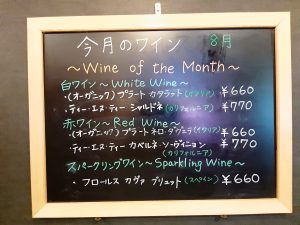 今月のワイン 8月
～Wine of the Month～
白ワイン～White Wine～
・(オーガニック) プラート カタラット (イタリア) ¥660
・ティー・エヌ・ティー シャルドネ (カリフォルニア) ¥770
赤ワイン～Red Wine～
・(オーガニック) プラート ネロ・ダヴラ (イタリア) ¥660
・ティー・エヌ・ティー カベルネ・ソーヴィニヨン ¥770
(カリフォルニア)
スパークリングワイン～Sparkling Wine～
・フロールス カヴァ ブリュット (スペイン) ¥660